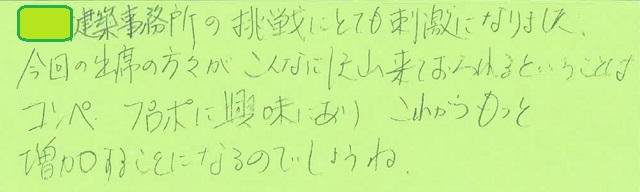 建築事務所の挑戦にとても刺激になりました、
今回の出席の方々がこんなに沢山来ておられるということは
コンペ プロポに興味にあり これからもっと
増加することになるのでしょうね、